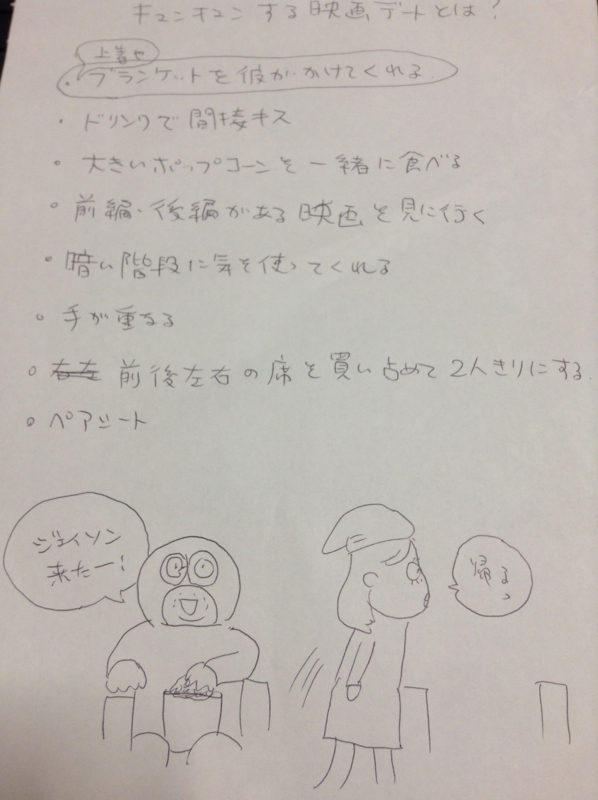 キュンキュンする映画デートとは?
上着や
・ブランケットを彼がかけてくれる
・ドリンクで間接キス
・大きいポップコーンを一緒に食べる
・前編・後編がある映画を見に行く
・暗い階段に気を使ってくれる
。手が重なる
。右左 前後左右の席を買い占めて2人きりにする
。ペアシート
ジェイソン
来たー!
帰るっ